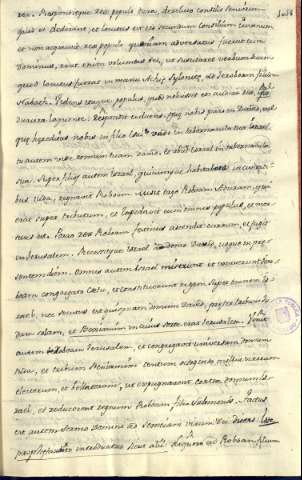 rex. Responditque rex populo dura, derelicto consilio seniorum
quod ei dederant, et locutus est eis secundum consilium iuvenum
et non acquievit rex populo quoniam adversatus fuerat eum
Dominus, ut suscitaret verbum suum
quod locutus fuerat in manu Achiæ Sylonitæ, ad Jeroboam filium
Nabath. Videns itaque populus, quod noluisset eos audire rex,
respondit ei dicens, quæ nobis pars in David, vel
quæ hæreditas nobis in filio Isai? vade in tabernacula tua Israel
tu autem vide domum tuam David. et abiit Israel in tabernacula
sua. Super filios autem Israel, quicumque habitabant in civitati
bus Iuda, regnavit Roboam. Misit ergo Roboam Aduram, qui
erat super tributum, et lapidavit eum omnis populus, et mor
tuus est. Porro rex Roboam festinus ascendit currum, et fugit
in Jerusalem. Recessitque Israel a domo David, usque in præ
sentem diem. omnes autem Israel miserunt et vocaverunt Jero
boam congregato cœtu, et constituerunt regem super omnem Is
rael, nec secutus est quisquam domum David, præter tribum Iu
dam solam, et Beniamin
autem Roboam Jerusalem, et congregavit universam domum
Iuda, et tribum Beniamin centum octoginta millia virorum
electorum, et bellatorum, ut expugnarent contra domum Is
rael, et reducerent regnum Roboam filio Salomonis. Factus
est autem sermo Domini ad Semeiam virum Dei dicens
ad Roboam filium